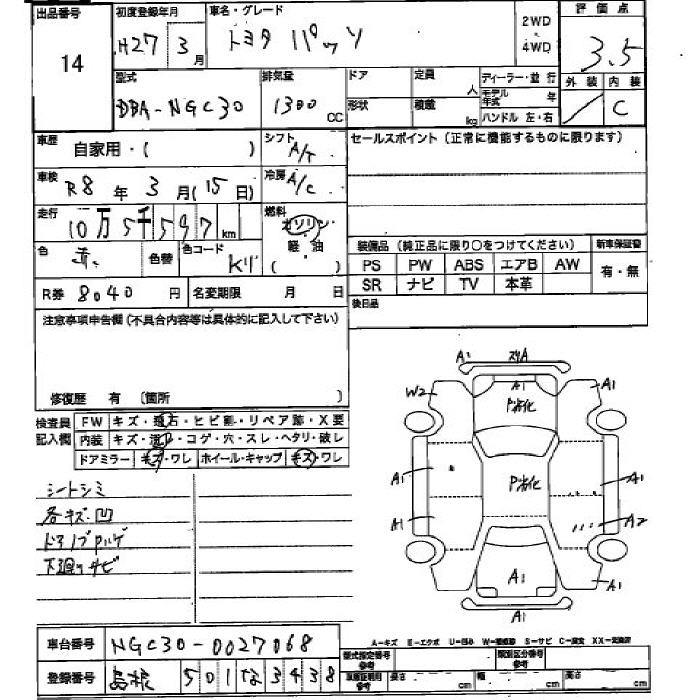 出品番号 初度登録年月 車名・グレード 2WD 評価点
14 H27 3月 トヨタ パッソ 4WD 3.5
型式 排気量 ドア 定員 人 ディーラー・並行 外装 内装
DBA-NGC30 1300 CC 形状 積載 kg モデル年式 年 C
ハンドル 左・右
車歴 自家用・( ) シフト A/T セールスポイント(正常に機能するものに限ります)
車検 R8年3月(15日) 冷房 A/C
走行 10万5千597km 燃料 ガソリン
軽油
( )
色 赤 色替 色コード 装備品(純正品に限り○をつけてください) 新車保証書
PS PW ABS エアB AW 有・無
R券 8040円 名変期限 月 日 SR ナビ TV 本革
後日品
注意事項申告欄(不具合内容等は具体的に記入して下さい)
修復歴 有 (箇所 )
検査員記入欄 FW キズ・飛石・ヒビ割・リペア跡・X要
内装 キズ・コゲ・穴・スレ・ヘタリ・破レ
ドアミラー キズ・ワレ ホイール・キャップ キズ・ワレ
シートシミ
各キズ・凹
下廻りサビ
A1
A1
W2
A1
P劣化
P劣化
A1
A1
A1
A2
A1
A1
A1
A-キズ E-エクボ U-凹み W-補修跡 S-サビ C-腐食 XX-交換済
車台番号 NGC30-0027068 型式指定番号 参考 類別区分番号 参考
登録番号 島根 501 な 3438 車庫証明用 参考 長さ cm 幅 cm 高さ cm